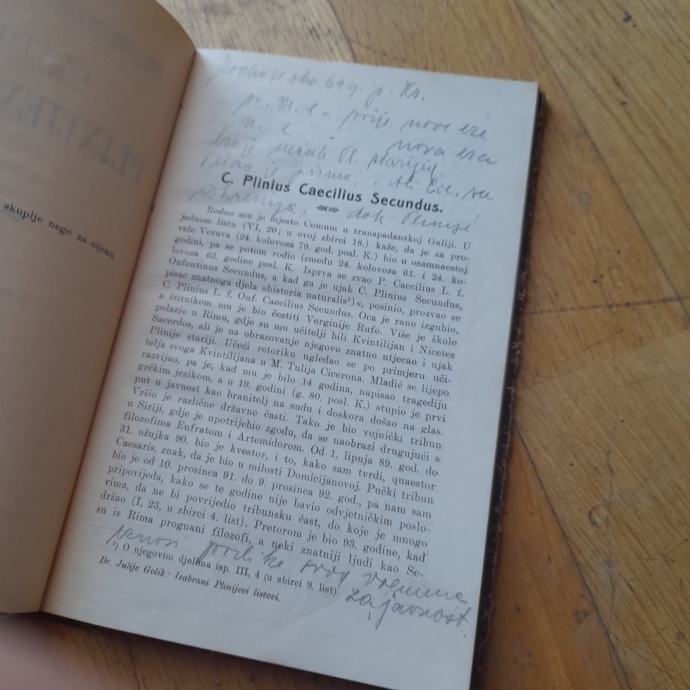 PLINIJEV
skuplje nego za cijenu
pr. n. e - prije nove ere
n. e - nova era
C. Plinius Caecilius Secundus.
Rodno mu je mjesto Comum u transpadanskoj Galiji. U
jednom listu (VI, 20; u ovoj zbirci 18.) kaže, da je za pro-
vale Vezuva (24. kolovoza 79. god. posl. K.) bio u osamnaestoj
godini, pa se potom rodio između 24. kolovoza 61. i 24. ko-
lovoza 62. godine posl. K. Isprva se zvao P. Caecilius L. f.
Oufentinus Secundus, a kad ga je ujak C. Plinius Secundus,
pisac znatnoga djela »historia naturalis¹) «, posinio, prozvao se
C. Plinius L. f. Ouf. Caecilius Secundus. Oca je rano izgubio,
a štitnikom mu je bio čestiti Verginije Rufo. Više je škole
polazio u Rimu, gdje su mu učitelji bili Kvintilijan i Nicetes
Sacerdos, ali je na obrazovanje njegovo znatno utjecao i ujak
Plinije stariji. Učeći retoriku ugledao se po primjeru uči-
telja svoga Kvintilijana u M. Tulija Cicerona. Mladić se lijepo
razvijao, pa je, kad mu je bilo 14 godina, napisao tragediju
grčkim jezikom, a u 19. godini (g. 80. posl. K.) stupio je prvi
put u javnost kao branitelj na sudu i doskora došao na glas.
Vršio je različne državne časti. Tako je bio vojnički tribun
u Siriji, gdje je upotrijebio zgodu, da se naobrazi drugujući s
filozofima Eufratom i Artemidorom. Od 1. lipnja 89. god. do
31. ožujka 90. bio je kvestor, i to, kako sam tvrdi, quaestor
Caesaris, znak, da je bio u milosti Domicijanovoj. Pučki tribun
bio je od 10. prosinca 91. do 9. prosinca 92. god., pa nam sam
pripovijeda, kako se te godine nije bavio odvjetničkim poslo-
vima, da ne bi povrijedio tribunsku čast, do koje je mnogo
držao (I, 23, u zbirci 4. list). Pretorom je bio 93. godine, kad
su iz Rima prognani filozofi, a neki znatniji ljudi kao Se-
prilike svog vremena
za javnost.
¹) O njegovim djelima isp. III, 4 (u zbirci 9. list).
Dr. Julije Golik: Izabrani Plinijevi listovi.
1